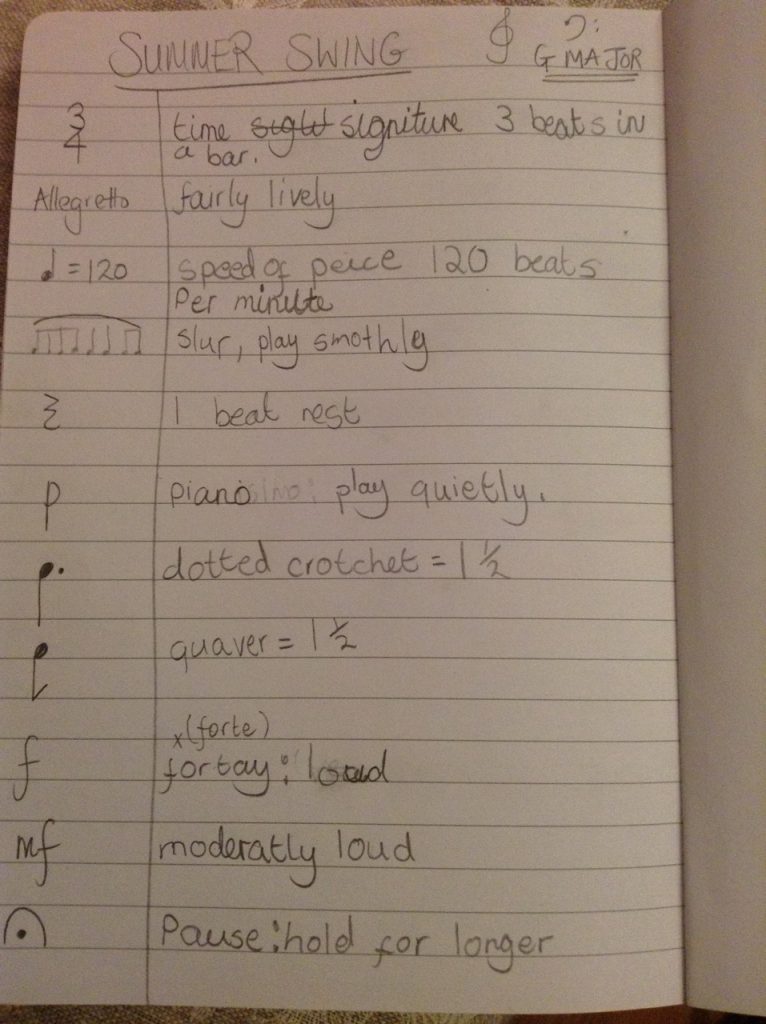 SUMMER SWING G MAJOR
3
4 time sight signiture 3 beats in
a bar.
Allegretto fairly lively
♩ = 120 speed of peice 120 beats
Per minute
slur, play smothly
1 beat rest
p piano play quietly.
dotted crotchet = 1 ½
quaver = 1 ½
x (forte)
f fortay: loud
mf moderatly loud
Pause: hold for longer